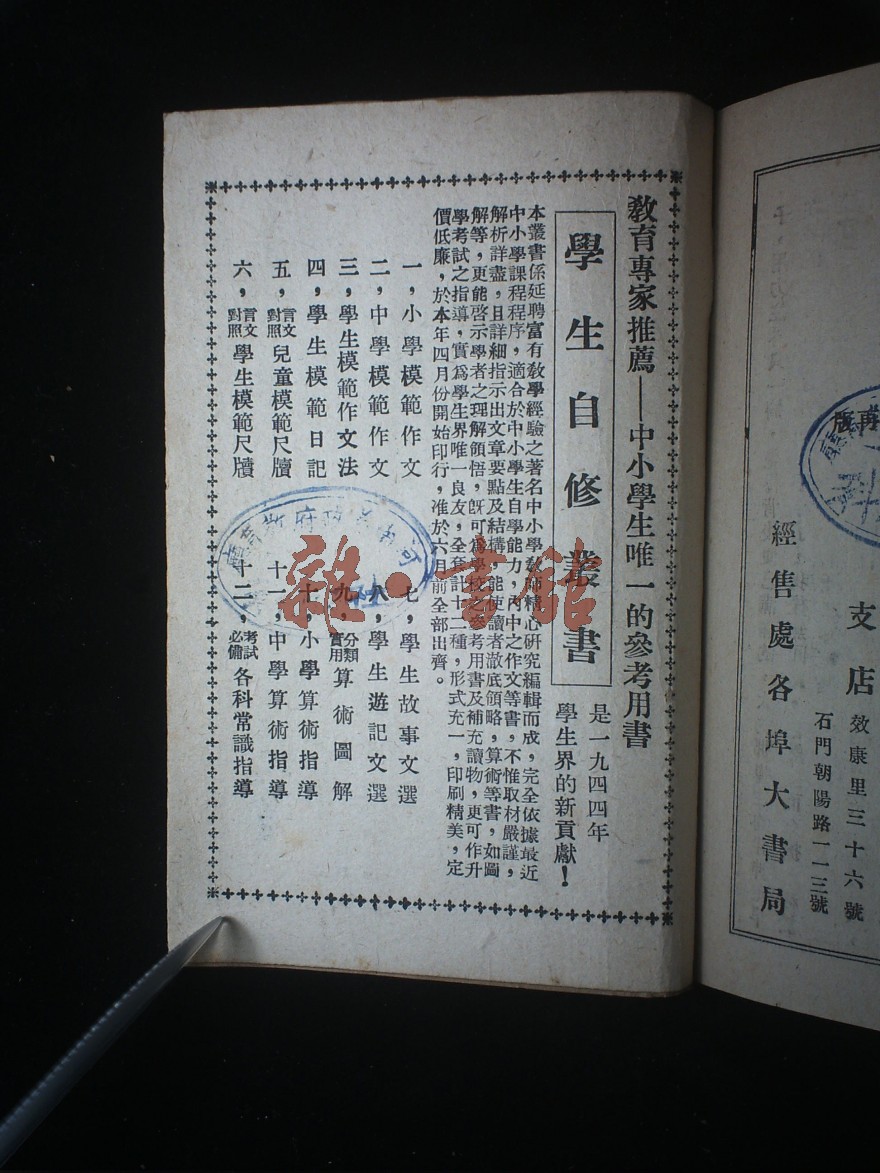 教育專家推薦——中小學生唯一的參考用書
學生自修叢書
是一九四四年
學生界的新貢獻！
本叢書係延聘富有教學經驗之著名中小學教師精心研究編輯而成，完全依據最近
中小學課程程序，適合於中小學生自學能力，內中之作文等書，不惟取材嚴謹，
解析詳盡，且詳細指示出文章要點及結構，能使讀者澈底領略，算術等書，如圖
解等，更能啓示學者之理解領悟，旣可爲學校之參考用書及補充讀物，更可作升
學考試之指導，實爲學生界唯一良友，全套計十二種，形式充一，印刷精美，定
價低廉，於本年四月份開始印行，准於六月前全部出齊。
一，小學模範作文
二，中學模範作文
三，學生模範作文法
四，學生模範日記
五，言文對照兒童模範尺牘
六，言文對照學生模範尺牘
七，學生故事文選
八，學生遊記文選
九，分類實用算術圖解
十，小學算術指導
十一，中學算術指導
十二，考試必備各科常識指導
雜·書館
再版
支店
效康里三十六號
石門朝陽路一一三號
經售處各埠大書局